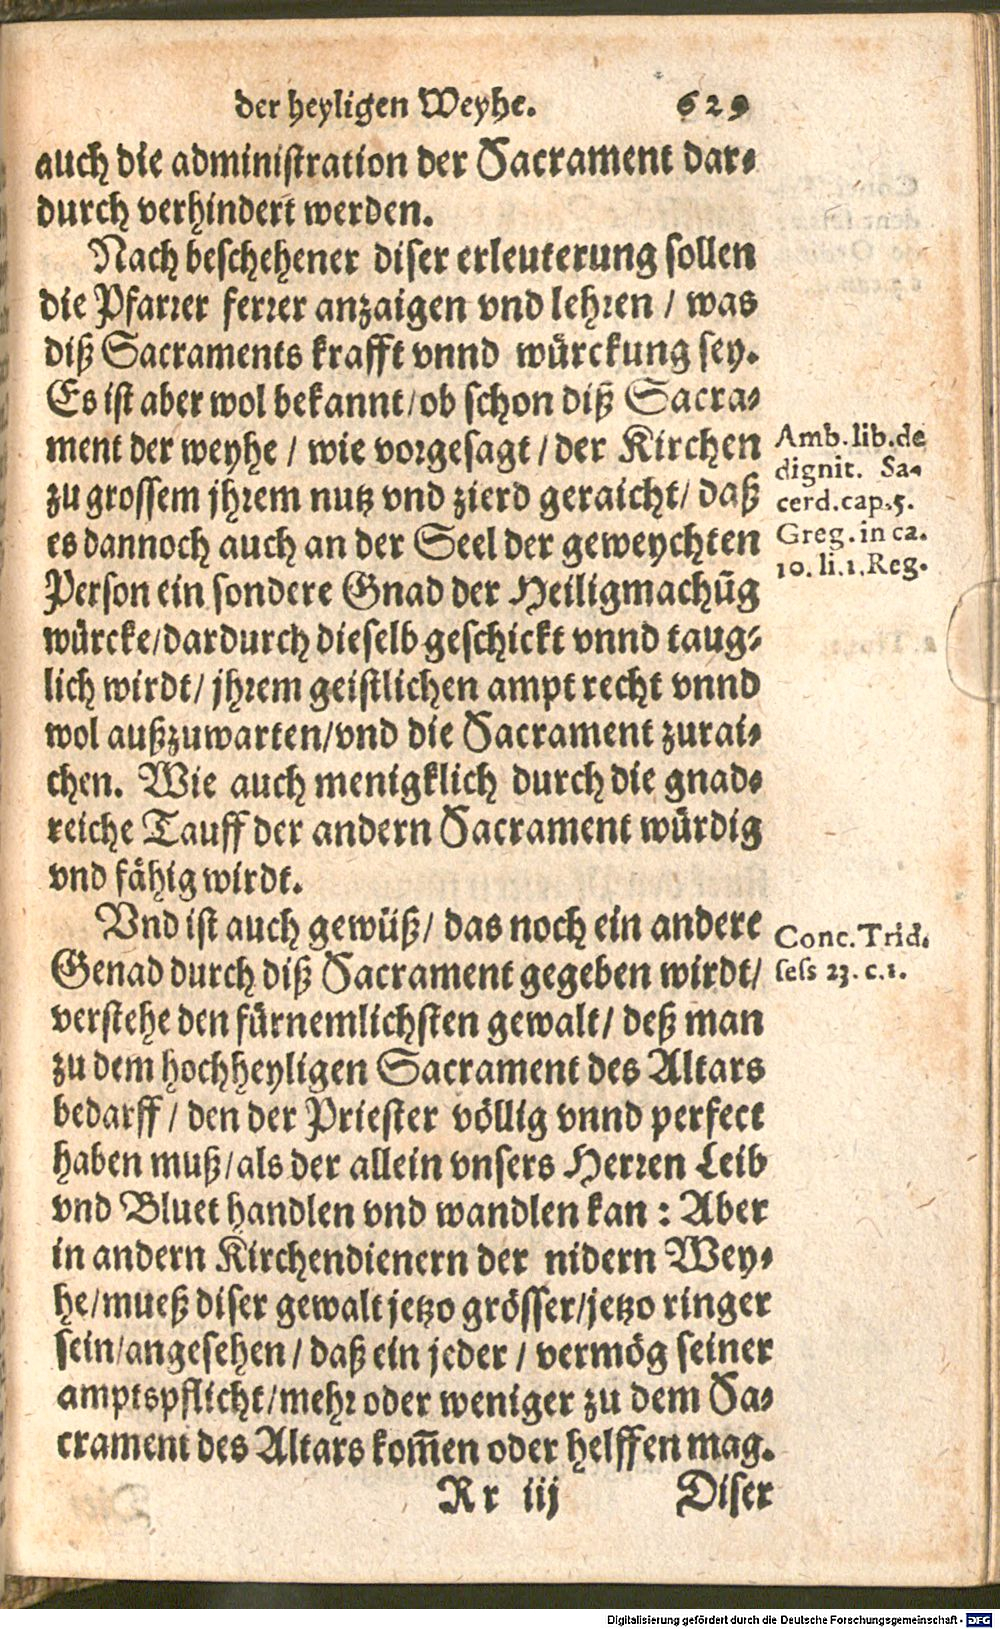 der heyligen Weyhe. 629
auch die administration der Sacrament dar⸗
durch verhindert werden.
Nach beschehener diser erleuterung sollen
die Pfarrer ferrer anzaigen vnd lehren / was
diß Sacraments krafft vnnd würckung sey.
Es ist aber wol bekannt / ob schon diß Sacra⸗
ment der weyhe / wie vorgesagt / der Kirchen
zu grossem jhrem nutz vnd zierd geraicht / daß
es dannoch auch an der Seel der geweychten
Person ein sondere Gnad der Heiligmachūg
würcke / dardurch dieselb geschickt vnnd taug⸗
lich wirdt / jhrem geistlichen ampt recht vnnd
wol außzuwarten / vnd die Sacrament zurai⸗
chen. Wie auch menigklich durch die gnad⸗
reiche Tauff der andern Sacrament würdig
vnd fähig wirdt.
Vnd ist auch gewüß / das noch ein andere
Genad durch diß Sacrament gegeben wirdt /
verstehe den fürnemlichsten gewalt / deß man
zu dem hochheyligen Sacrament des Altars
bedarff / den der Priester völlig vnnd perfect
haben muß / als der allein vnsers Herren Leib
vnd Bluet handlen vnd wandlen kan : Aber
in andern Kirchendienern der nidern Wey⸗
he / mueß diser gewalt jetzo grösser / jetzo ringer
sein / angesehen / daß ein jeder / vermög seiner
amptspflicht / mehr oder weniger zu dem Sa⸗
crament des Altars kom̄en oder helffen mag.
Rr iij Diser
Amb. lib. de
dignit. Sa⸗
cerd. cap. 5.
Greg. in ca.
10. li. 1. Reg.
Conc. Trid.
sess 23. c. 1.
Digitalisierung gefördert durch die Deutsche Forschungsgemeinschaft - DFG